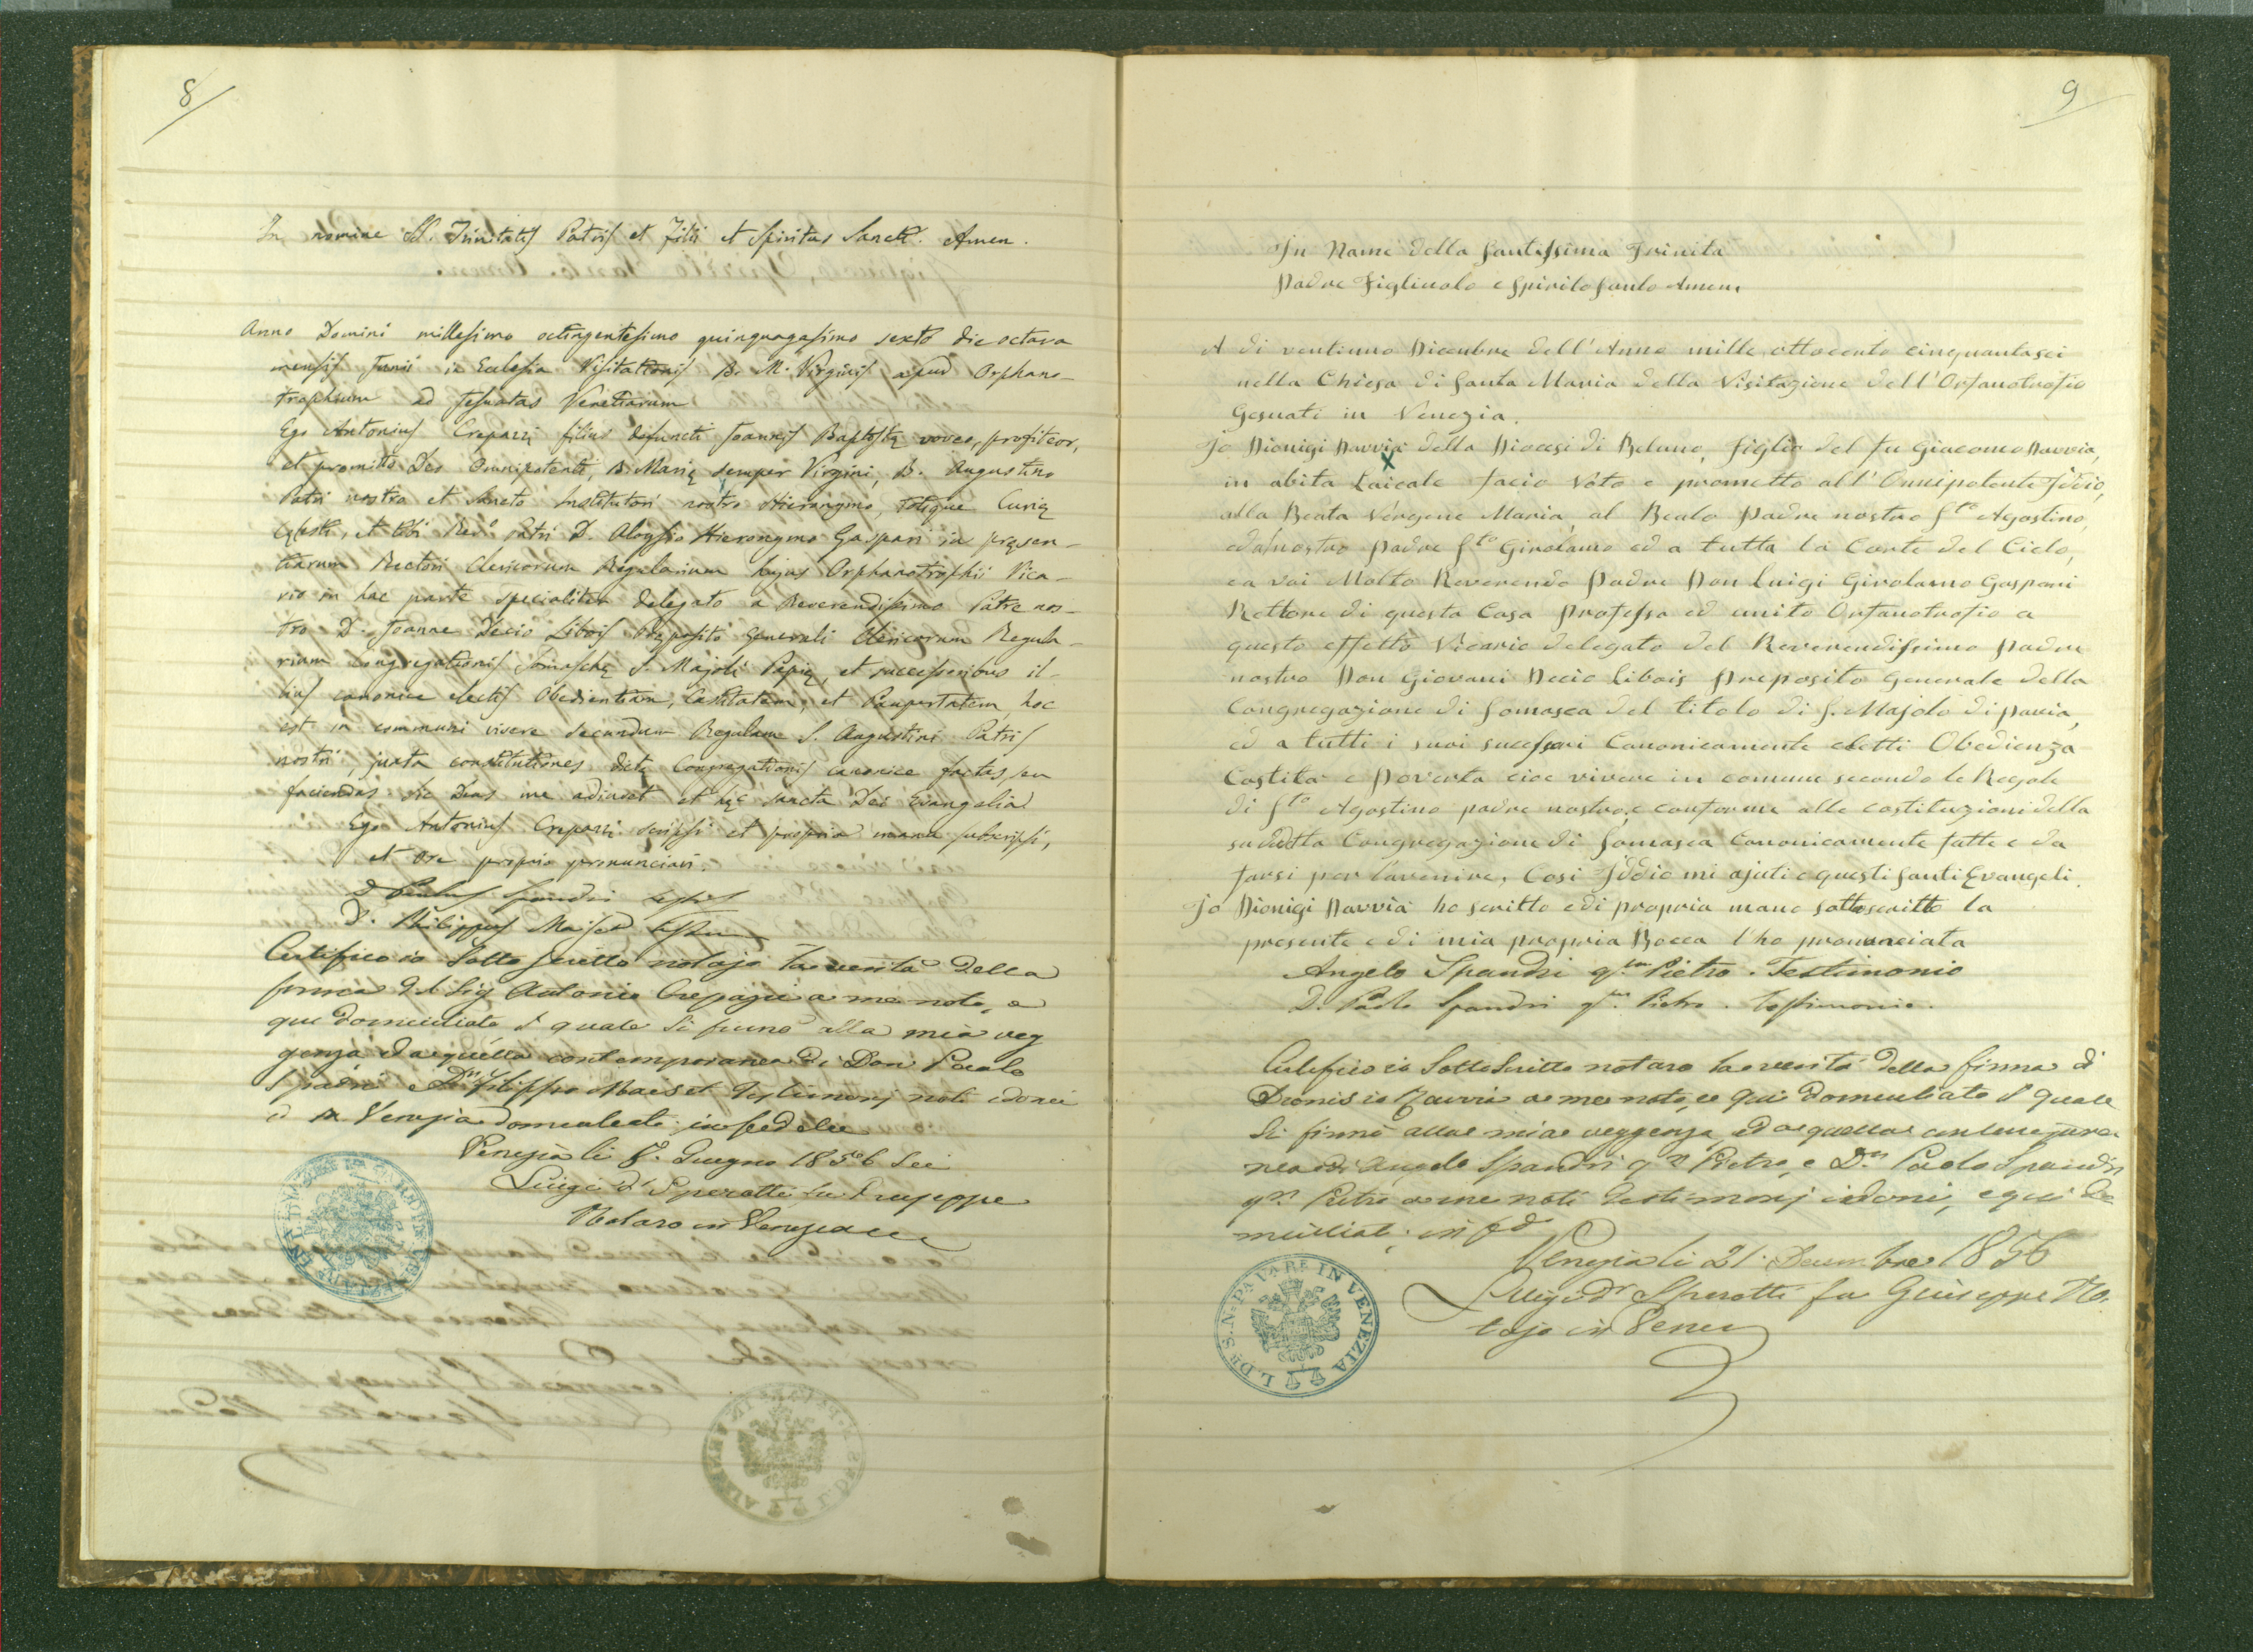 8
In nomine SS. Trinitatis Patris et Filii et Spiritus Sancti. Amen.
Anno Domini millesimo octingentesimo quinquagesimo sexto die octava
mensis Junii in Ecclesia Visitationis B. M. Virginis apud Orphano-
trophium ad Jesuatas Venetiarum
Ego Antonius Crepazzi filius defuncti Joannis Baptistę voveo, profiteor,
et promitto Deo Omnipotenti, B. Marię semper Virgini, B. Augustino
Patri nostro et Sancto Institutori nostro Hieronymo, totique Curię
Cęlesti, et tibi Redo Patri D. Aloysio Hieronymo Gaspari in pręsen-
tiarum Rectori Clericorum Regularium hujus Orphanotrophii Vica-
rio in hac parte specialiter delegato a Reverendissimo Patre nos-
tro D. Joanne Decio Libois Pręposito Generali Clericorum Regula-
rium Congregationis Somaschę S. Majoli Papię, et successoribus il-
lius canonice electis Obedientiam, Castitatem, et Paupertatem, hoc
est in communi vivere secundum Regulam S. Augustini Patris
nostri, juxta constitutiones dictę Congregationis canonice factas, seu
faciendas sic Deus me adiuvet et hęc sancta Dei Evangelia
Ego Antonius Crepazzi scripsi et propria manu subscripsi,
et ore proprio pronunciavi.
D. Paulus Spandri testis
D. Philippus Maiset testis
Certifico io Sotto Scritto notajo la verità della
firma del Sig Antonio Crepazzi a me noto, e
qui domiciliato il quale si firmò alla mia veg
genza ed a quella contemporanea di Don Paolo
Spadri e Dn Filippo Maiset Testimonj noti idonei
in Venezia domiciliati in fede
Venezia li 8. Giugno 1856 Sei
Luigi Dr Sperotti fu Giuseppe
Notaro in Venezia
9
In Name della Santissima Trinita
Padre Figliuolo e Spirito Santo Amen.
A di ventiuno Dicembre dell'Anno mille ottocento cinquantasei
nella Chiesa di Santa Maria della Visitazione dell'Orfanotrofio
Gesuati in Venezia.
Jo Dionigi Davvià della Diocesi di Beluno, figlio del fu Giacomo Davvia,
in abito Laicale facio Voto e prometto all'Onnipotente Iddio,
alla Beata Vergene Maria, al Beato Padre nostro Sto Agostino,
ed al nostro padre Sto Girolamo ed a tutta la Corte del Cielo,
ea voi Molto Reverendo Padre Don Luigi Girolamo Gaspari
Rettore di questa Casa Professa ed unito Orfanotrofio a
questo effetto Vicario delegato del Reverendissimo Padre
nostro Don Giovani Decio Libois Preposito Generale della
Congregazione di Somasca del titolo di S. Majolo di Pavia,
ed a tutti i suoi sucessori Canonicamente eletti Obedienza
Castita e Poverta cioe vivere in comune secondo le Regole
di Sto Agostino padre nostro, e conforme alle costituzioni della
sudetta Congregazione di Somasca Canonicamente fatte e da
farsi per l'avenire, Cosi Iddio mi ajuti e questi Santi Evangeli.
Jo Dionigi Davvià ho scritto e di propria mano sottoscritto la
presente e di mia propria Bocca l'ho pronunciata
Angelo Spandri qm Pietro. Testimonio
D. Paolo Spandri qm Pietro. testimonio.
Certifico io Sotto Scritto notaro la verità della firma di
Dionisio Davvia a me noto, e qui domiciliato il quale
si firmò alla mia veggenza, ed a quella contempora
nea di Angelo Spandri qm Pietro, e Dn Paolo Spandri
qm Pietro a me noti Testimonj idonei, e qui do
miciliati; in fede
Venezia li 21. Decembre 1856
Luigi Dr Sperotti fu Giuseppe No.
tajo in Venezia
L. DR. S. N. PAVARE IN VENEZIA